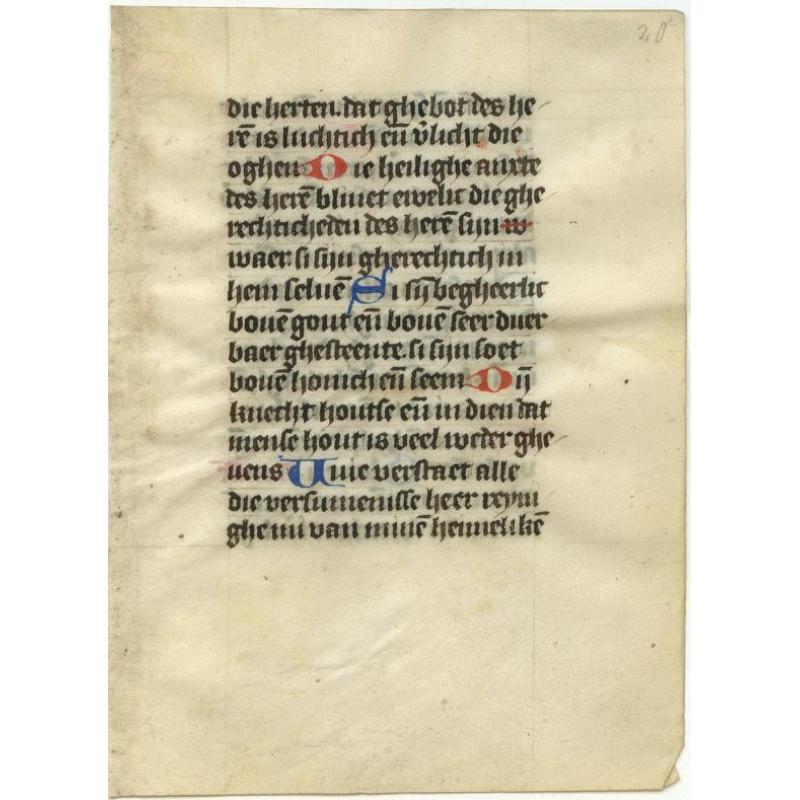 20
die herten. dat ghebot des he
rē is luchtich eñ v̄licht die
oghen Die heilighe anxte
des herē blinet ewelic die ghe
rechticheden des herē sijn w
waer. si sijn gherechtich in
hem seluē Si sij̄ begheerlic
bouē gout eñ bouē seer duer
baer ghesteente. si sijn soet
bouē honich eñ seem Dij̄
knecht houtse eñ in dien dat
mense hout is veel weder ghe
uens Wie verstaet alle
die versumenisse heer reyni
ghe mi van minē heimelikē